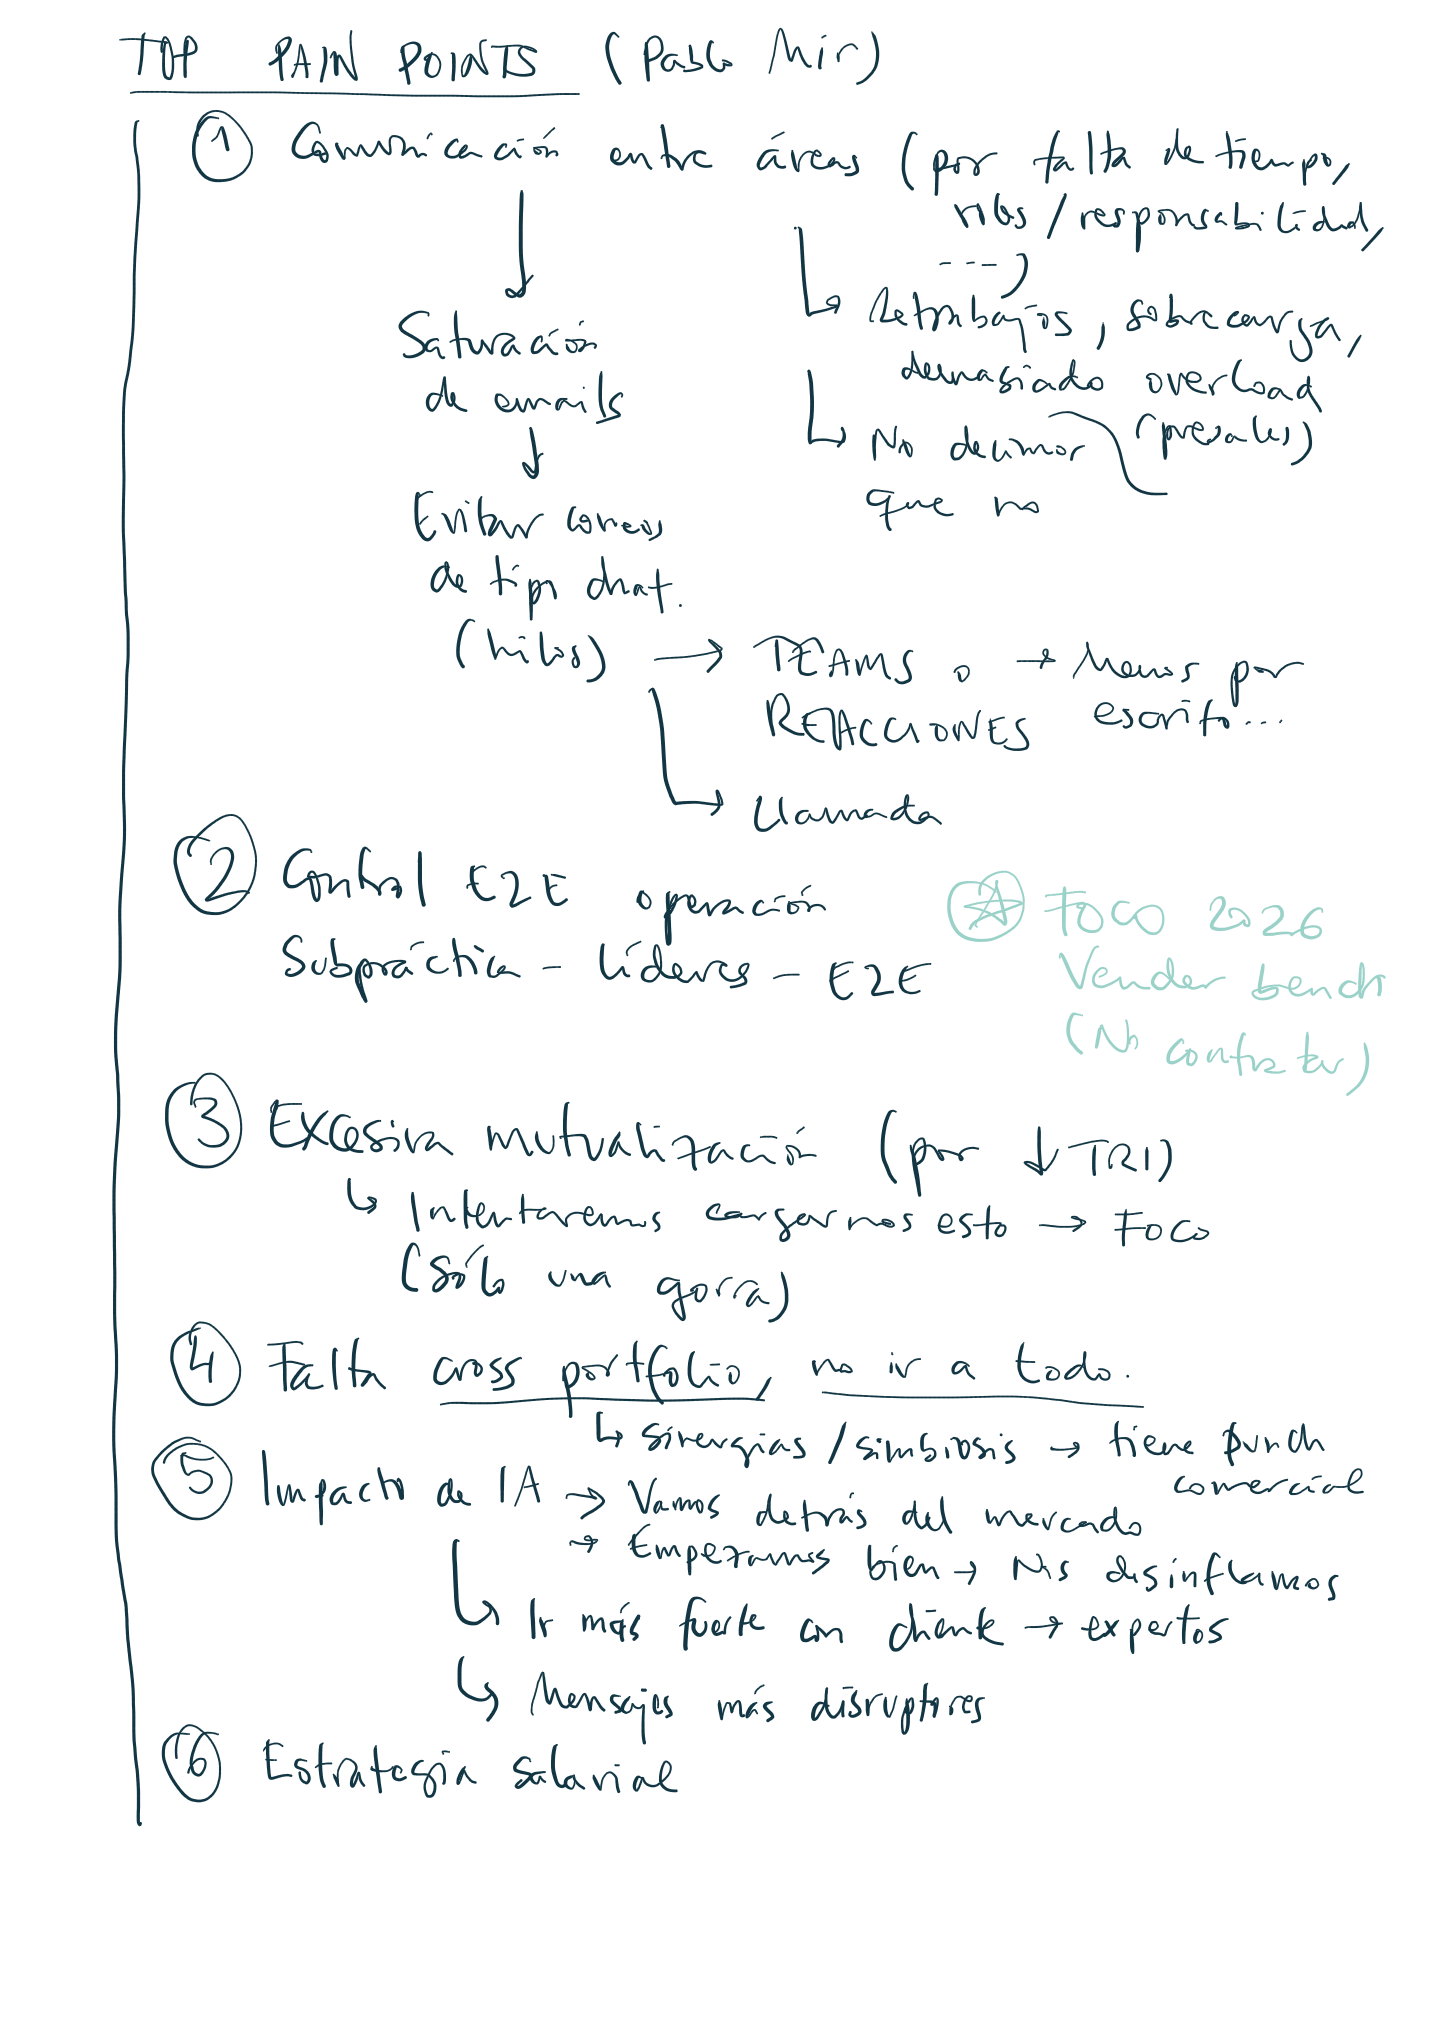 TOP PAIN POINTS (Pablo Mir)
① Comunicación entre áreas (por falta de tiempo,
roles / responsabilidad,
...)
↓
Saturación
de emails
↓
Evitar correos
de tipo chat.
(hilos) → TEAMS o → Menos por
REACCIONES escrito...
↳ Llamada
↳ Retrabajos, sobrecarga,
demasiado overload
(presales)
↳ No decimos
que no
② Control E2E operación
Subpráctica - líderes - E2E
☆ FOCO 2026
Vender bench
(No contratar)
③ Excesiva mutualización (por ↓ TRI)
↳ Intentaremos cargarnos esto → FOCO
(Sólo una gorra)
④ Falta cross portfolio, no ir a todo.
↳ sinergias / simbiosis → tiene punch
comercial
⑤ Impacto de IA → Vamos detrás del mercado
→ Empezamos bien → Nos desinflamos
↳ Ir más fuerte con cliente → expertos
↳ Mensajes más disruptores
⑥ Estrategia salarial